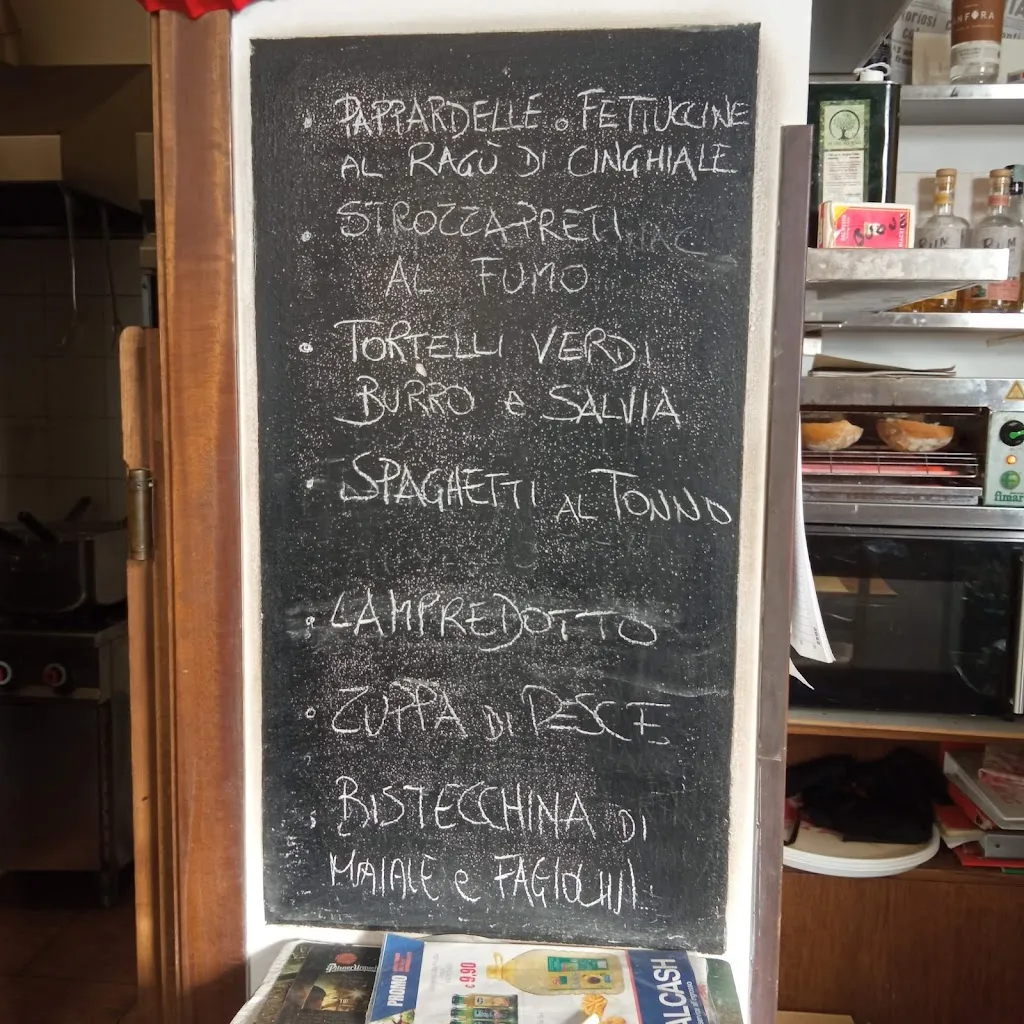 • PAPPARDELLE o FETTUCCINE
AL RAGÙ DI CINGHIALE
• STROZZAPRETI
AL FUMO
• TORTELLI VERDI
BURRO e SALVIA
• SPAGHETTI AL TONNO
• LAMPREDOTTO
• ZUPPA DI PESCE
• BISTECCHINA DI
MAIALE e FAGIOLI
ANFORA
RUM
fimar
Pilsner Urquell
PROMO
€ 9,90
ALCASH